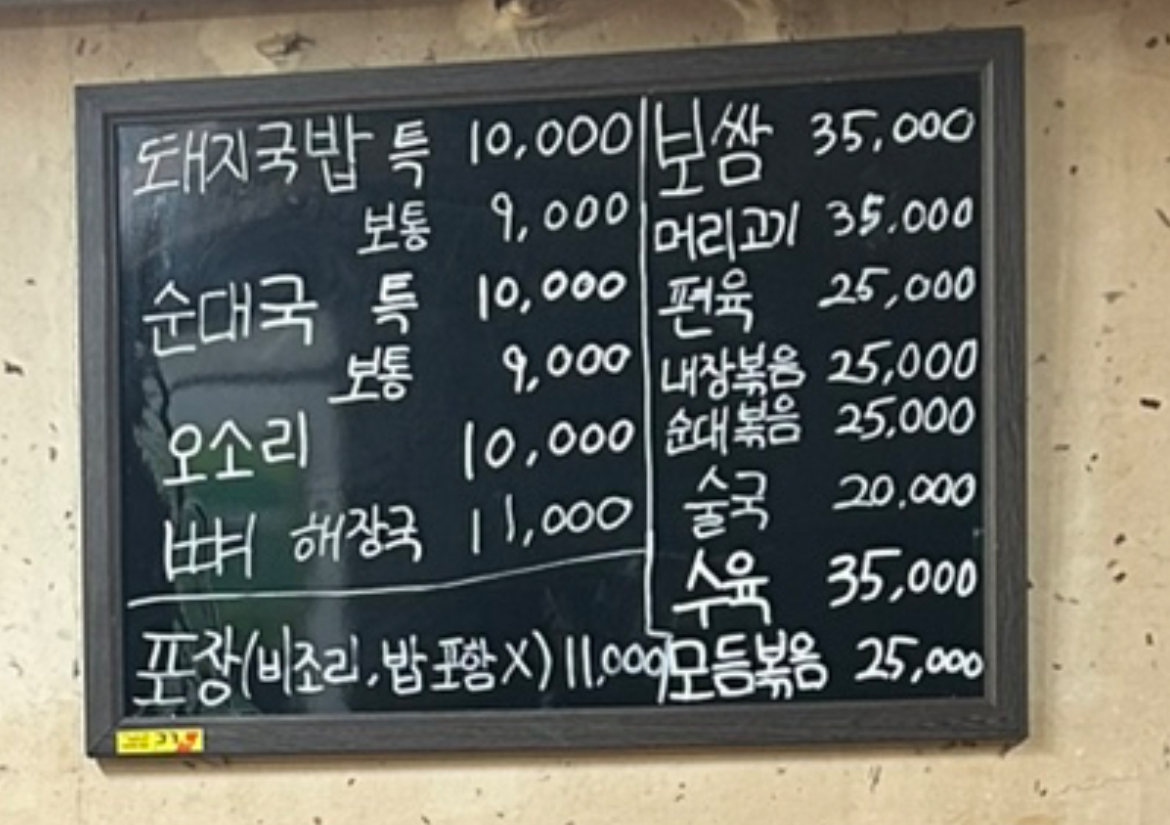 돼지국밥 특 10,000
보통 9,000
순대국 특 10,000
보통 9,000
오소리 10,000
뼈 해장국 11,000
포장(비조리, 밥 포함 X) 11,000
보쌈 35,000
머리고기 35.000
편육 25,000
내장볶음 25,000
순대볶음 25,000
술국 20.000
수육 35,000
모듬볶음 25,000